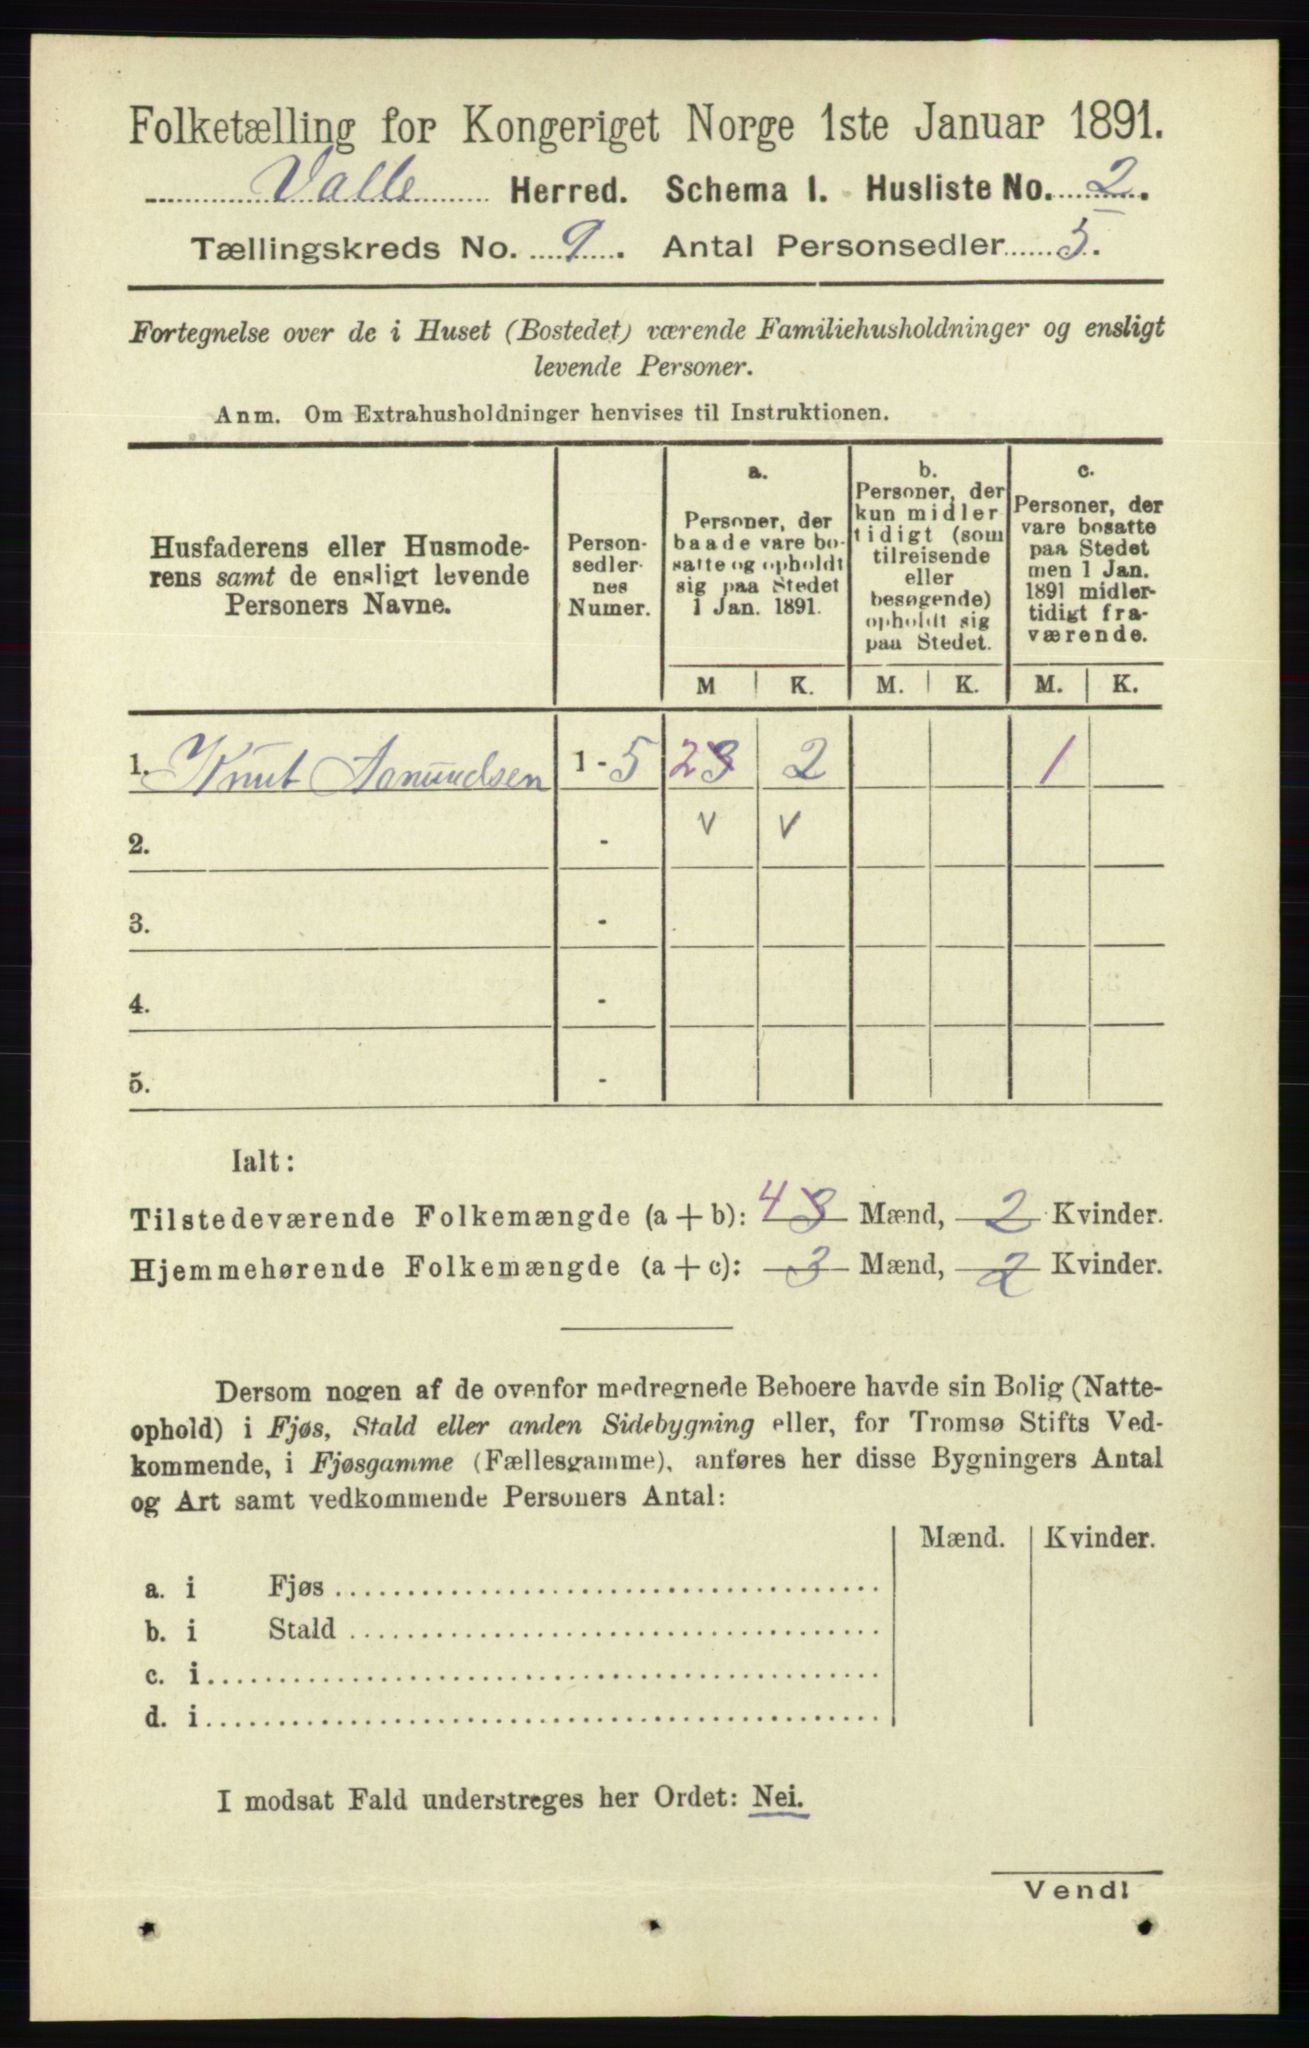 Folketælling for Kongeriget Norge 1ste Januar 1891.
Valle Herred. Schema I. Husliste No. 2.
Tællingskreds No. 9. Antal Personsedler 5.
Fortegnelse over de i Huset (Bostedet) værende Familiehusholdninger og ensligt
levende Personer.
Anm. Om Extrahusholdninger henvises til Instruktionen.
Husfaderens eller Husmode-
rens samt de ensligt levende
Personers Navne.
Person-
sedler-
nes
Numer.
a.
Personer, der
baade vare bo-
satte og opholdt
sig paa Stedet
1 Jan. 1891.
M K.
b.
Personer, der
kun midler
tidigt (som
tilreisende
eller
besøgende)
opholdt sig
paa Stedet.
M. K.
c.
Personer, der
vare bosatte
paa Stedet
men 1 Jan.
1891 midler-
tidigt fra-
værende.
M. K.
1. Knut Asmundsen 1 - 5 2 3 2 1
2. - v v
3. -
4. -
5. -
Ialt:
Tilstedeværende Folkemængde (a + b): 4 3 Mænd, 2 Kvinder.
Hjemmehørende Folkemængde (a + c): 3 Mænd, 2 Kvinder.
Dersom nogen af de ovenfor medregnede Beboere havde sin Bolig (Natte-
ophold) i Fjøs, Stald eller anden Sidebygning eller, for Tromsø Stifts Ved-
kommende, i Fjøsgamme (Fællesgamme), anføres her disse Bygningers Antal
og Art samt vedkommende Personers Antal:
Mænd. Kvinder.
a. i Fjøs
b. i Stald
c. i
d. i
I modsat Fald understreges her Ordet: Nei.
Vend!